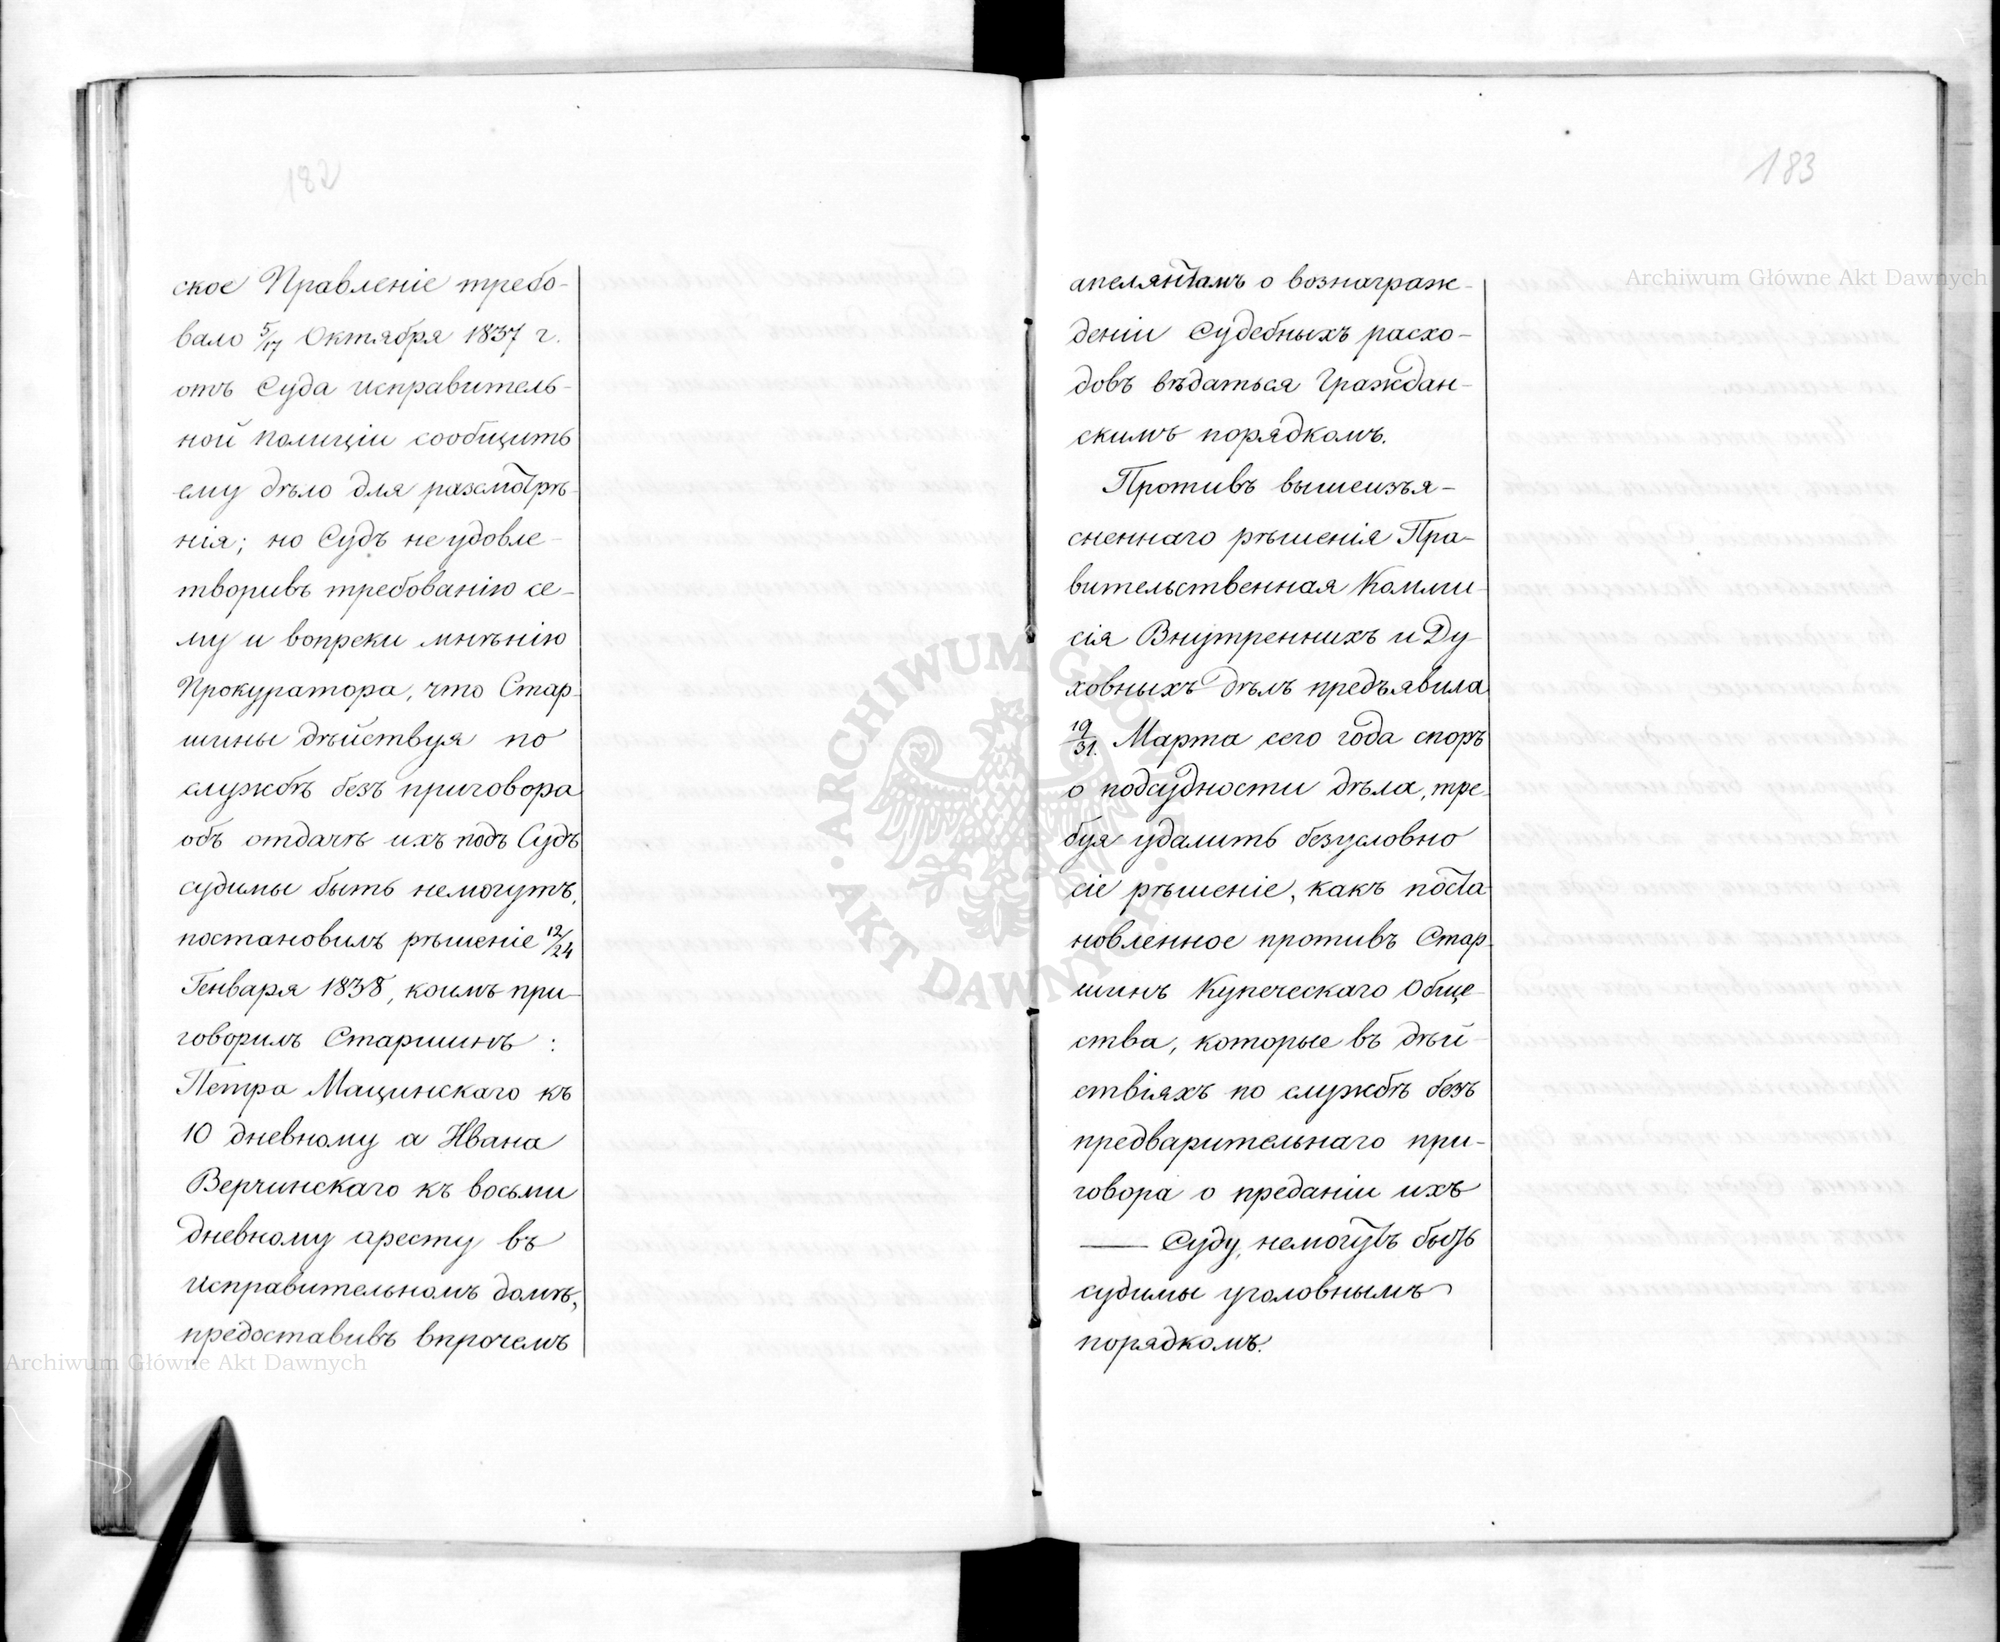 182
ское Правленіе требо-
вало 5/17 Октября 1837 г.
отъ Суда исправитель-
ной полиціи сообщить
ему дѣло для разсмотрѣ-
нія; но Судъ не удовле-
творивъ требованію се-
му и вопреки мнѣнію
Прокуратора, что Стар-
шины дѣйствуя по
службѣ безъ приговора
объ отдачѣ ихъ подъ Судъ
судимы быть немогутъ,
постановилъ рѣшеніе 12/24
Генваря 1838, коимъ при-
говорилъ Старшинъ:
Петра Мацинскаго къ
10 дневному а Ивана
Верчинскаго къ восьми
дневному аресту въ
исправительномъ домѣ,
предоставивъ впрочемъ
183
апелянтамъ о вознаграж-
деніи Судебныхъ расхо-
довъ вѣдаться Граждан-
скимъ порядкомъ.
Противъ вышеизъя-
сненнаго рѣшенія Пра-
вительственная Комми-
сія Внутреннихъ и Ду-
ховныхъ дѣлъ предъявила
19/31. Марта сего года споръ
о подсудности дѣла, тре-
буя удалить безусловно
сіе рѣшеніе, какъ поста-
новленное противъ Стар-
шинъ Купеческаго Обще-
ства, которые въ дѣй-
ствіяхъ по службѣ безъ
предварительнаго при-
говора о преданіи ихъ
— Суду, немогутъ быть
судимы уголовнымъ
порядкомъ.
Archiwum Główne Akt Dawnych
Archiwum Główne Akt Dawnych
ARCHIWUM GŁÓWNE AKT DAWNYCH